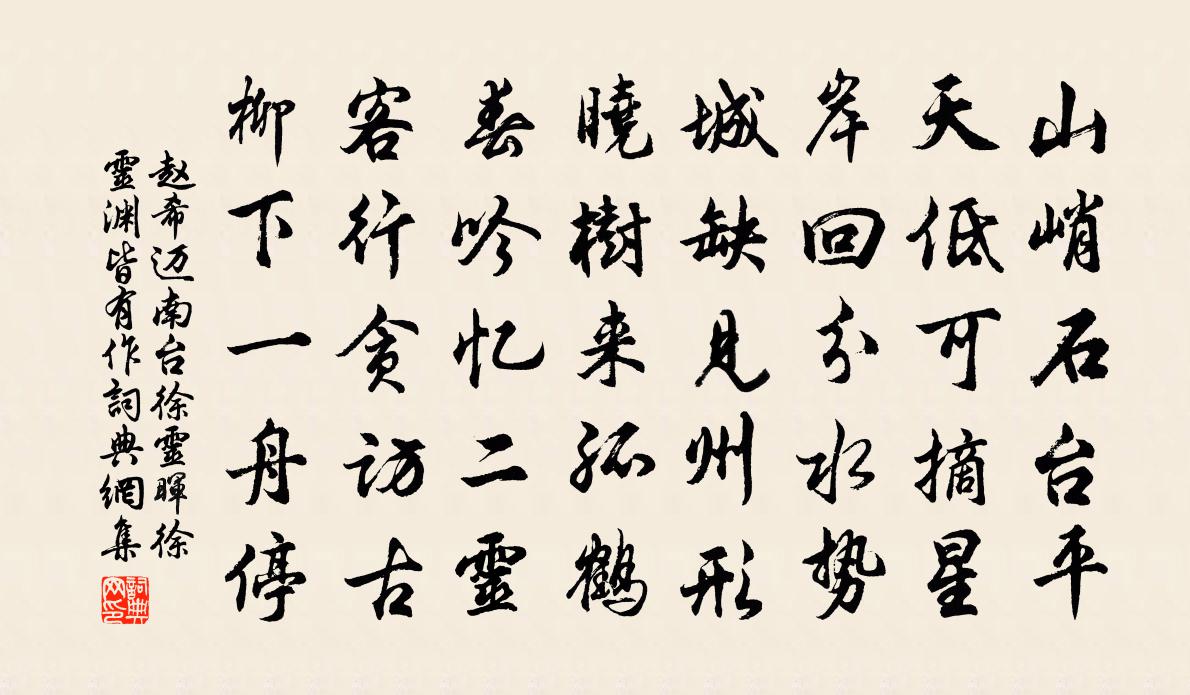 山峭石台平
天低可摘星
岸回分水势
城缺見州形
曉樹来孤鹤
春吟忆二靈
客行贪访古
柳下一舟停
赵希迈南台徐靈暉徐
靈渊皆有作詞典網集
詞典
网印